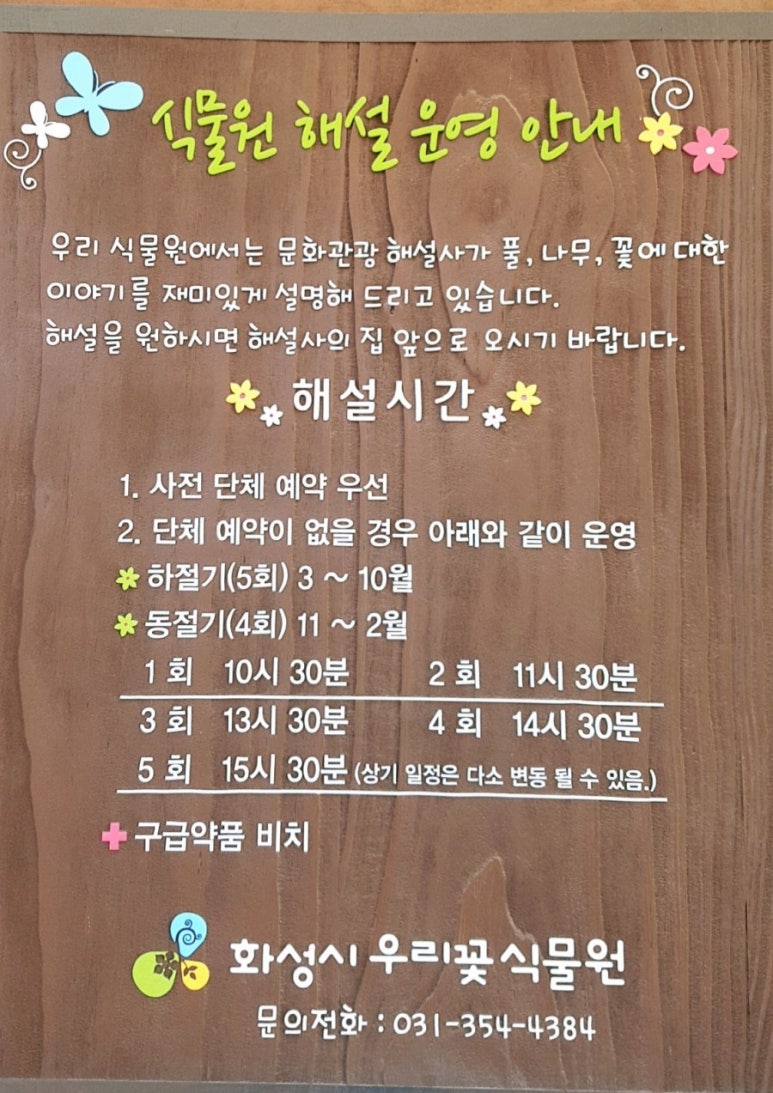 식물원 해설 운영 안내
우리 식물원에서는 문화관광 해설사가 풀, 나무, 꽃에 대한
이야기를 재미있게 설명해 드리고 있습니다.
해설을 원하시면 해설사의 집 앞으로 오시기 바랍니다.
해설시간
1. 사전 단체 예약 우선
2. 단체 예약이 없을 경우 아래와 같이 운영
하절기(5회) 3 ~ 10월
동절기(4회) 11 ~ 2월
1 회 10시 30분 2 회 11시 30분
3 회 13시 30분 4 회 14시 30분
5 회 15시 30분 (상기 일정은 다소 변동 될 수 있음.)
구급약품 비치
화성시 우리꽃 식물원
문의전화 : 031-354-4384